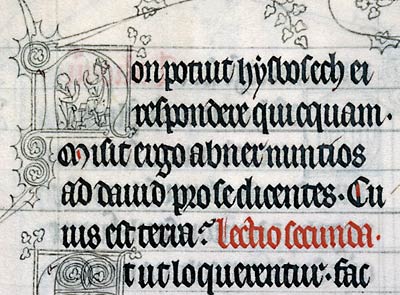 Non potuit hysboseth ei
respondere quicquam.
Misit ergo abner nuntios
ad dauid pro se dicentes. Cu
ius est terra? Lectio secunda.
Et ut loquerentur. fac